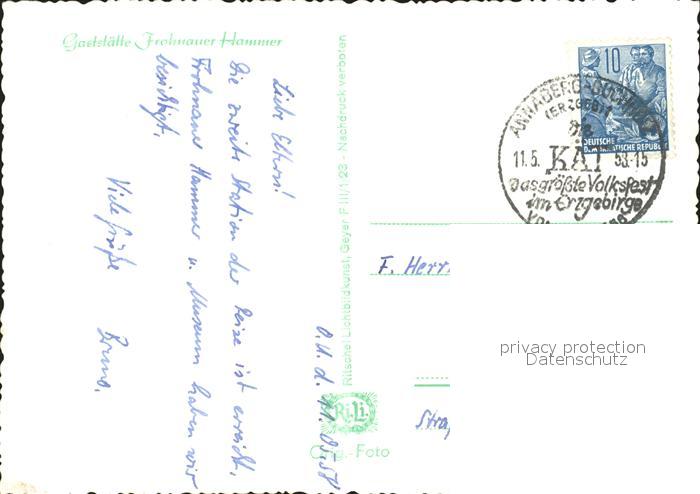 Gaststätte Frohnauer Hammer
O.U. d. 11.05.58
Liebe Eltern!
Die zweite Station der Reise ist erreicht.
Frohnauer Hammer u. Museum haben wir
besichtigt.
Viele Grüße
Bruno.
Ritschel Lichtbildkunst, Geyer F III/1 23 - Nachdruck verboten
Ri.Li.
Orig.-Foto
10
DEUTSCHE
DEMOKRATISCHE REPUBLIK
ANNABERG-BUCHHOLZ
(ERZGEB) 1
Die
11.5. KÄT 58-15
Das größte Volksfest
im Erzgebirge
F. Herr
privacy protection
Datenschutz